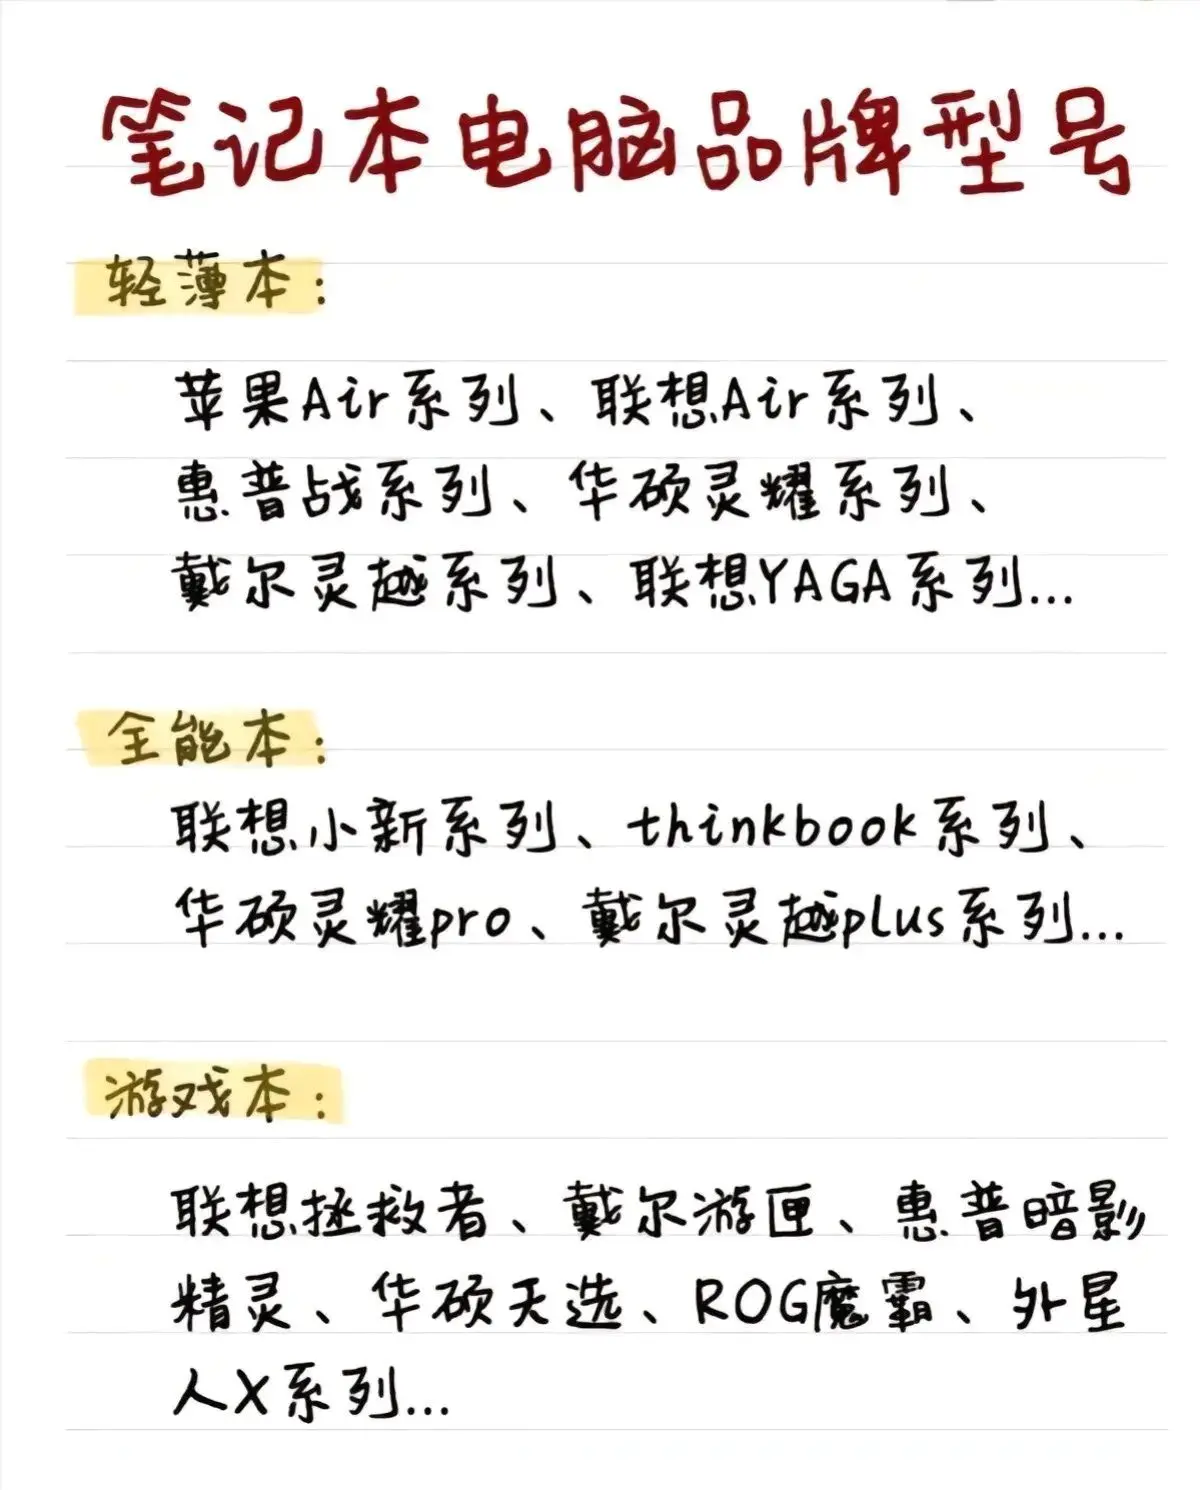 笔记本电脑品牌型号
轻薄本：
苹果Air系列、联想Air系列、
惠普战系列、华硕灵耀系列、
戴尔灵越系列、联想YAGA系列...
全能本：
联想小新系列、thinkbook系列、
华硕灵耀pro、戴尔灵越plus系列...
游戏本：
联想拯救者、戴尔游匣、惠普暗影
精灵、华硕天选、ROG魔霸、外星
人X系列...